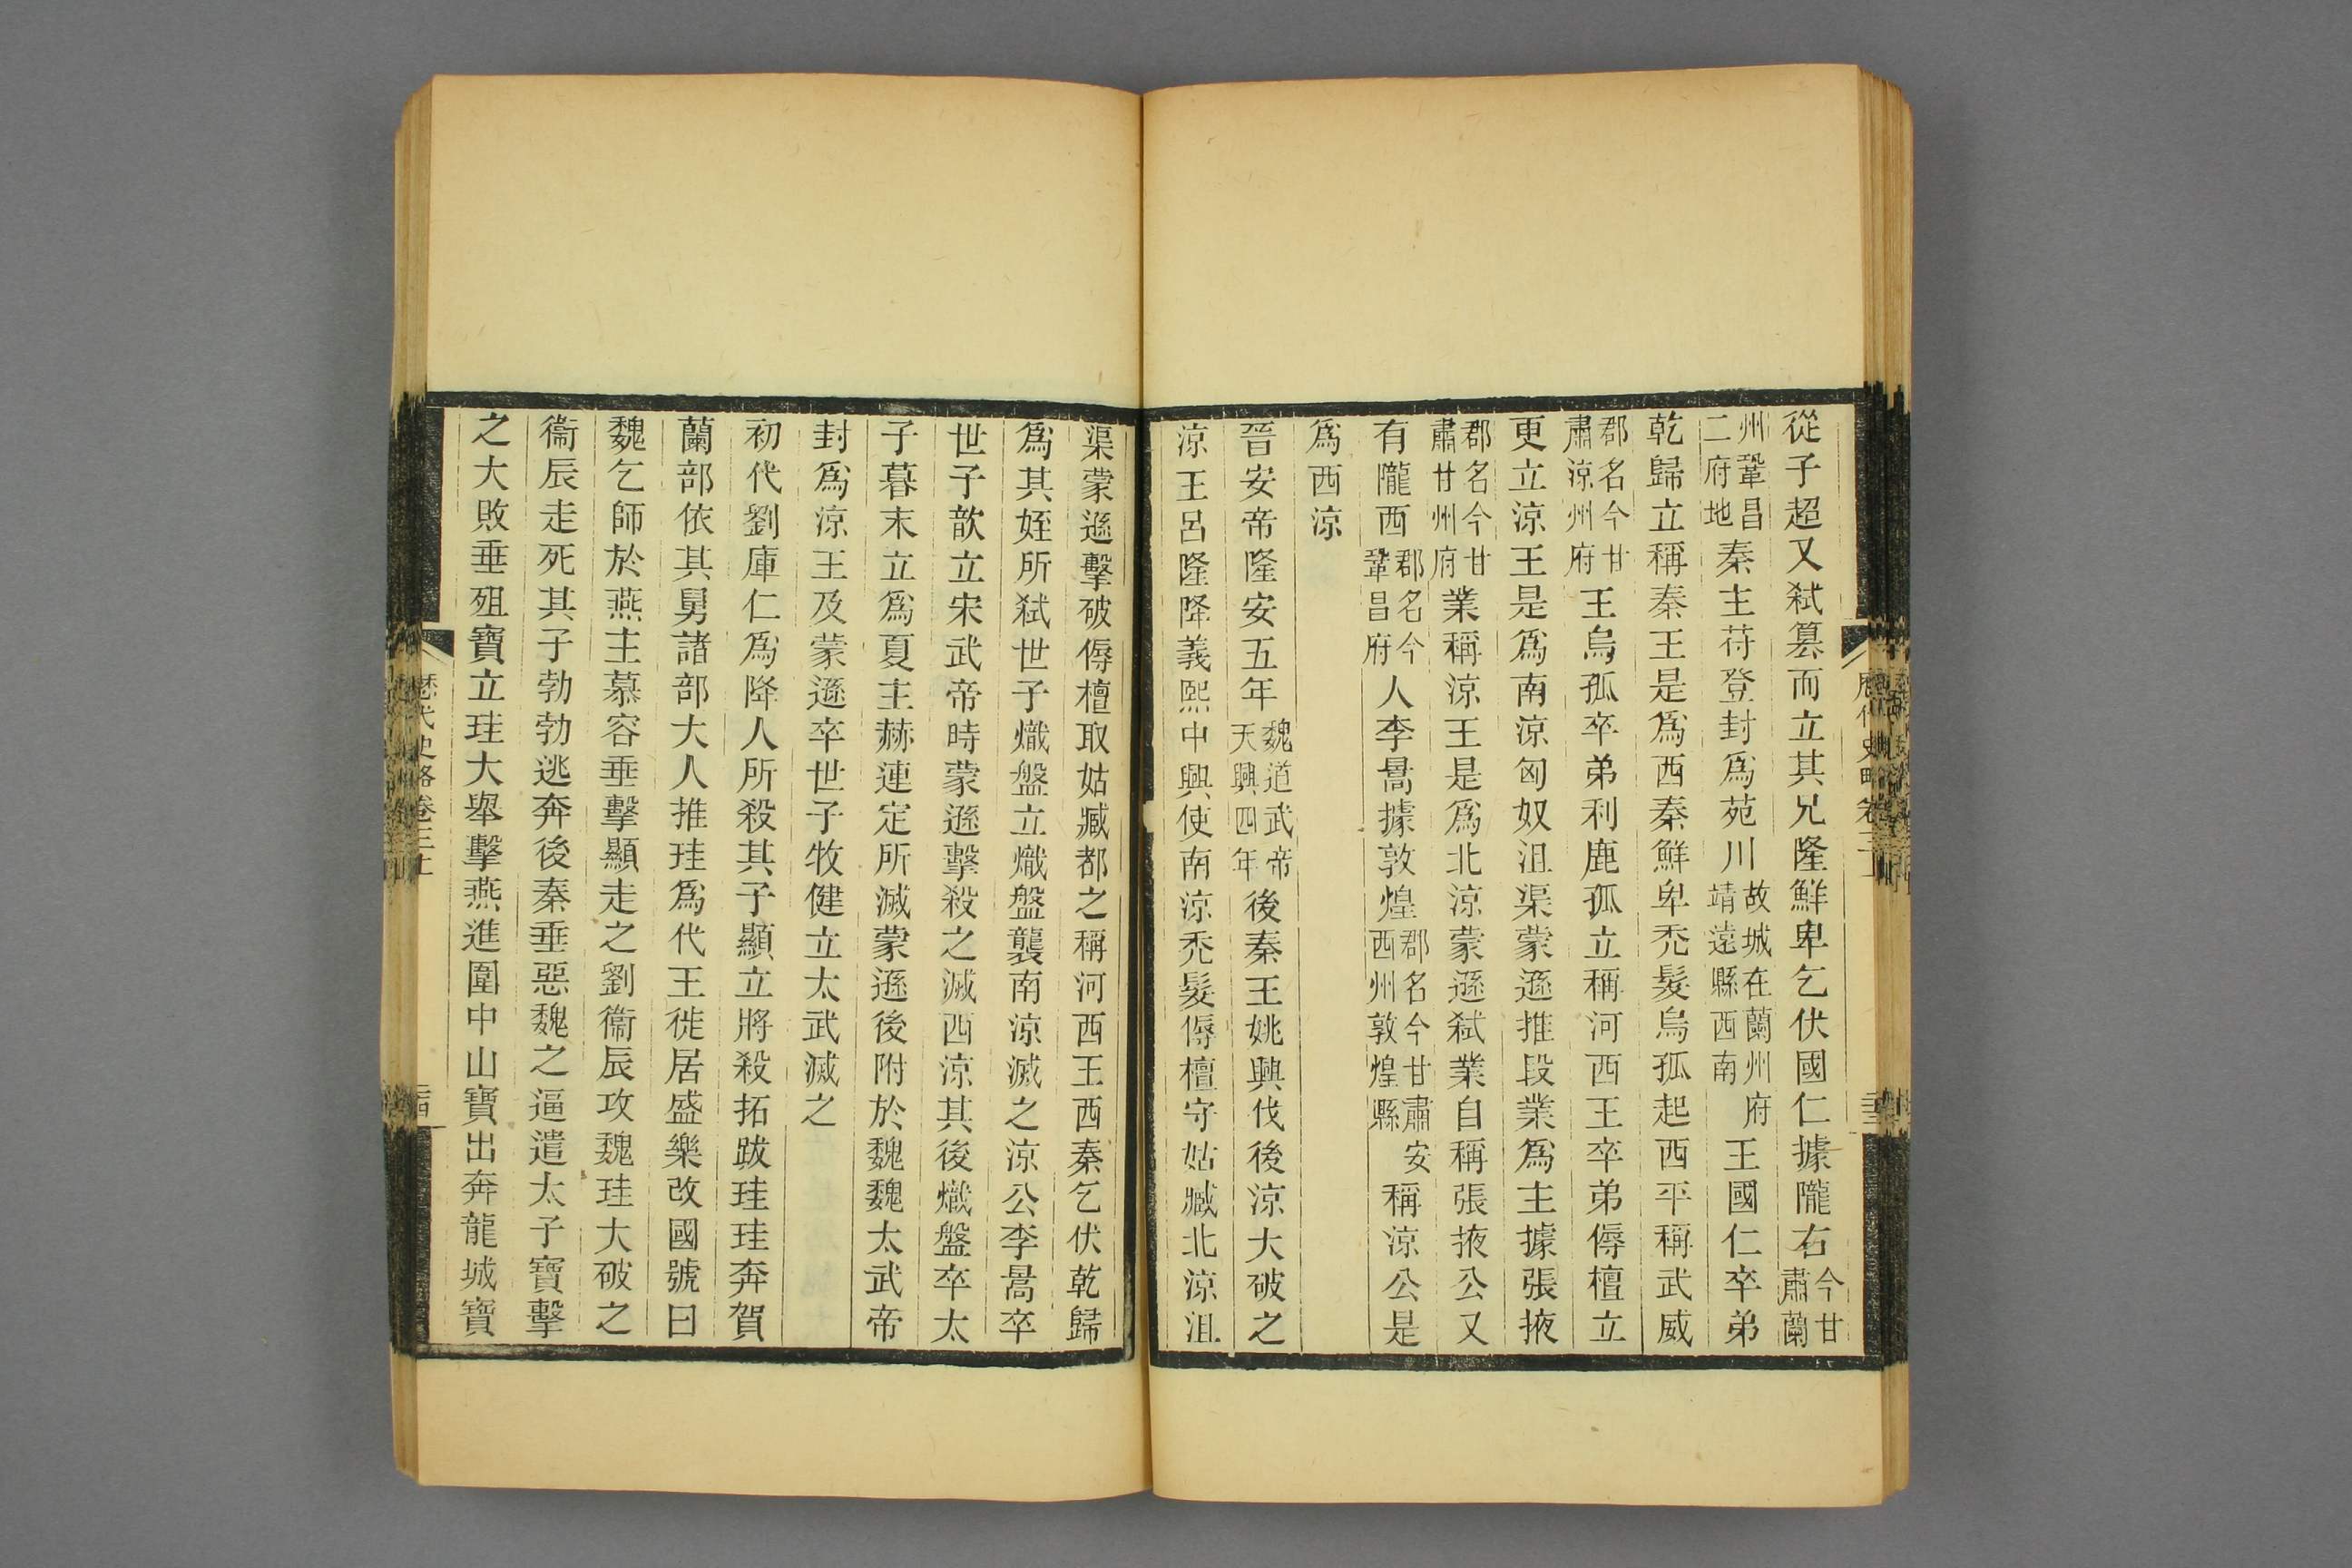 從子超又弑篡而立其兄隆鮮卑乞伏國仁據隴右今甘肅蘭
州鞏昌二府地秦主苻登封爲苑川故城在蘭州府靖遠縣西南王國仁卒弟
乾歸立稱秦王是爲西秦鮮卑禿髮烏孤起西平稱武威
郡名今甘肅涼州府王烏孤卒弟利鹿孤立稱河西王卒弟傉檀立
更立涼王是爲南涼匈奴沮渠蒙遜推段業爲主據張掖
郡名今甘肅甘州府業稱涼王是爲北涼蒙遜弑業自稱張掖公又
有隴西郡名今鞏昌府人李暠據敦煌郡名今甘肅安西州敦煌縣稱涼公是
爲西涼
晉安帝隆安五年魏道武帝天興四年後秦王姚興伐後涼大破之
涼王呂隆降義熙中興使南涼禿髮傉檀守姑臧北涼沮
渠蒙遜擊破傉檀取姑臧都之稱河西王西秦乞伏乾歸
爲其姪所弑世子熾盤立熾盤襲南涼滅之涼公李暠卒
世子歆立宋武帝時蒙遜擊殺之滅西涼其後熾盤卒太
子暮末立爲夏主赫連定所滅蒙遜後附於魏魏太武帝
封爲涼王及蒙遜卒世子牧健立太武滅之
初代劉庫仁爲降人所殺其子顯立將殺拓跋珪珪奔賀
蘭部依其舅諸部大人推珪爲代王徙居盛樂改國號曰
魏乞師於燕主慕容垂擊顯走之劉衞辰攻魏珪大破之
衞辰走死其子勃勃逃奔後秦垂惡魏之逼遣太子寶擊
之大敗垂殂寶立珪大舉擊燕進圍中山寶出奔龍城寶
歷代史略卷三上